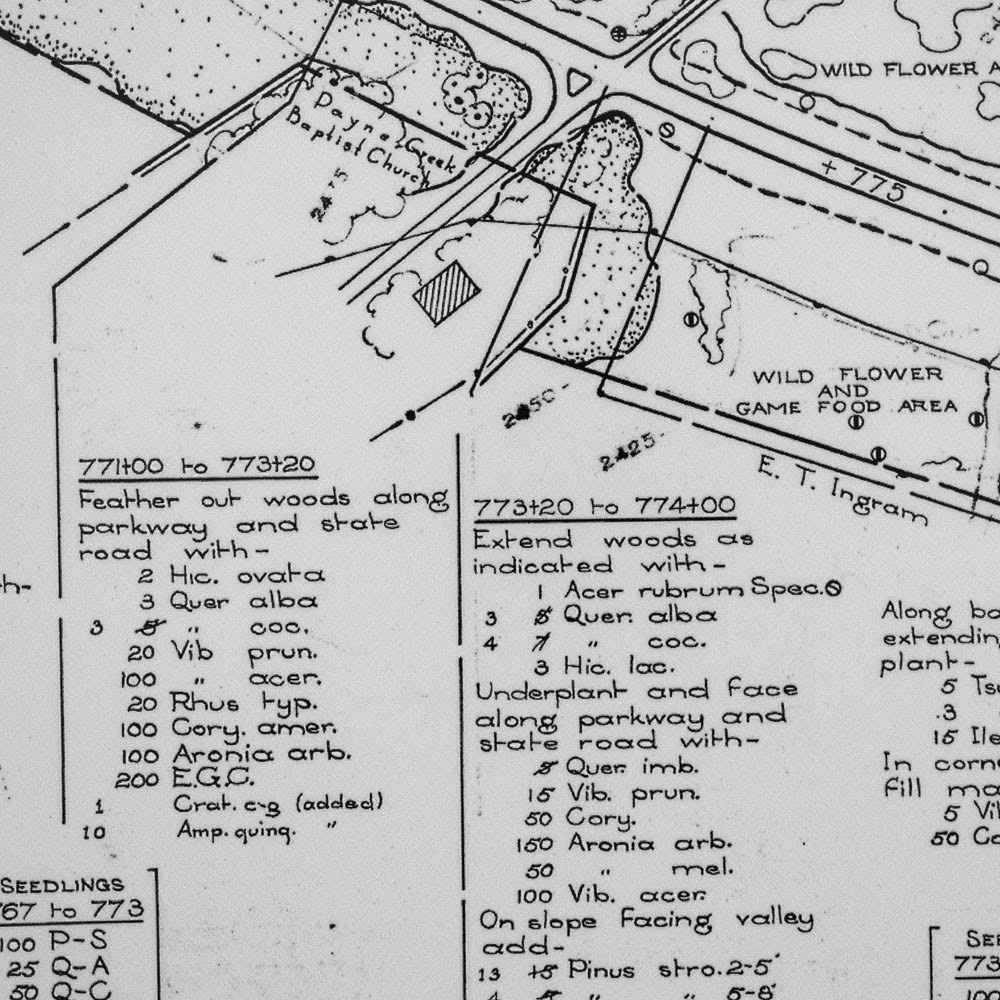 WILD FLOWER A
Payne Creek
Baptist Church
2475
+ 775
WILD FLOWER
AND
GAME FOOD AREA
2450
2425
E. T. Ingram
771+00 to 773+20
Feather out woods along
parkway and state
road with-
2 Hic. ovata
3 Quer alba
3 5 " coc.
20 Vib prun.
100 " acer.
20 Rhus typ.
100 Cory. amer.
100 Aronia arb.
200 E.G.C.
1 Crat. c-g (added)
10 Amp. quinq. "
SEEDLINGS
767 to 773
100 P-S
25 Q-A
50 Q-C
773+20 to 774+00
Extend woods as
indicated with-
1 Acer rubrum Spec.
3 5 Quer. alba
4 7 " coc.
3 Hic. lac.
Underplant and face
along parkway and
state road with-
5 Quer. imb.
15 Vib. prun.
50 Cory.
150 Aronia arb.
50 " mel.
100 Vib. acer.
On slope facing valley
add-
13 15 Pinus stro. 2-5'
4 5 " " 5-8'
h-
Along ba
extending
plant-
5 Tsu
3
15 Ile
In corne
fill ma
5 Vib
50 Co
SEE
773
100